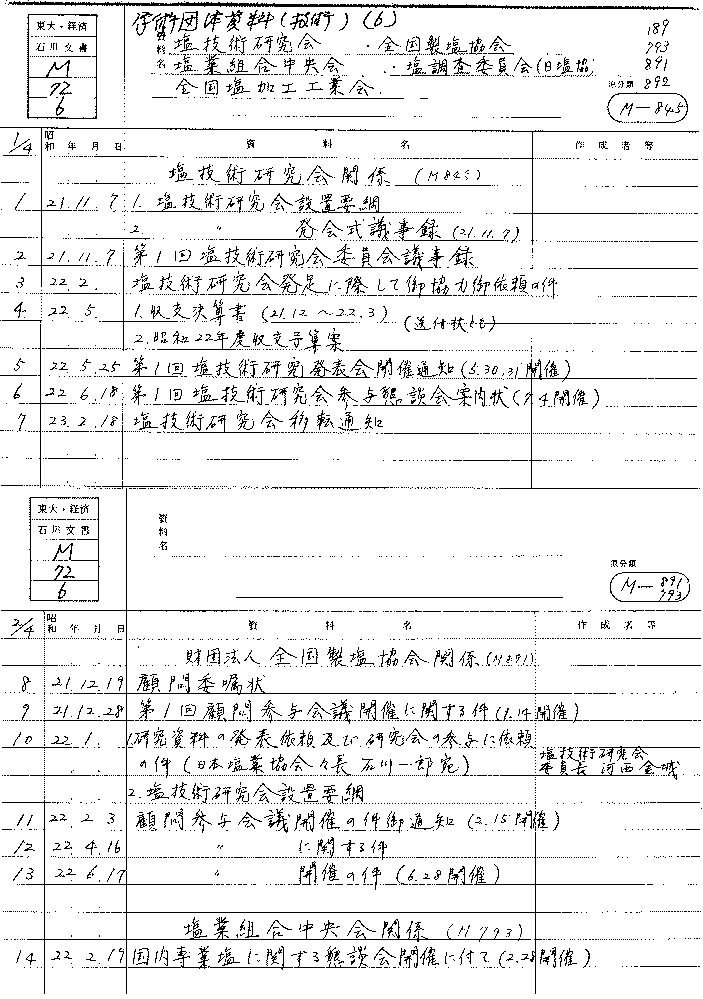 学術団体資料(技術)(6)
東大・経済
石川文書
M
72
6
資料名
塩技術研究会 ・全国製塩協会
塩業組合中央会 ・塩調査委員会(日塩協)
全国塩加工工業会
189
793
891
892
M-845
1/4 昭和 年 月 日 資 料 名 作成者等
塩技術研究会関係 (M845)
1 21.11.7 1. 塩技術研究会設置要綱
2. 〃 発会式議事録(21.11.7)
2 21.11.7 第1回塩技術研究会委員会議事録
3 22.2. 塩技術研究会発足に際して御協力御依頼の件
4 22.5. 1.収支決算書(21.12〜22.3) (送付状とも)
2.昭和22年度収支予算案
5 22.5.25 第1回塩技術研究発表会開催通知(5.30.31開催)
6 22.6.18 第1回塩技術研究会参与懇談会案内状(7.4開催)
7 23.2.18 塩技術研究会移転通知
東大・経済
石川文書
M
72
6
資料名
原分類
M-891
793
2/4 昭和 年 月 日 資 料 名 作成者等
財団法人 全国製塩協会関係(M891)
8 21.12.19 顧問委嘱状
9 21.12.28 第1回顧問参与会議開催に関する件(1.14開催)
10 22.1. 1.研究資料の発表依頼及び研究会の参与に依頼
の件(日本塩業協会々長 石川一郎宛) 塩技術研究会
委員長 河西金城
2.塩技術研究会設置要綱
11 22.2.3 顧問参与会議開催の件御通知(2.15開催)
12 22.4.16 〃 に関する件
13 22.6.17 〃 開催の件(6.28開催)
塩業組合中央会関係(M793)
14 22.2.19 国内専業塩に関する懇談会開催に付て(2.28開催)